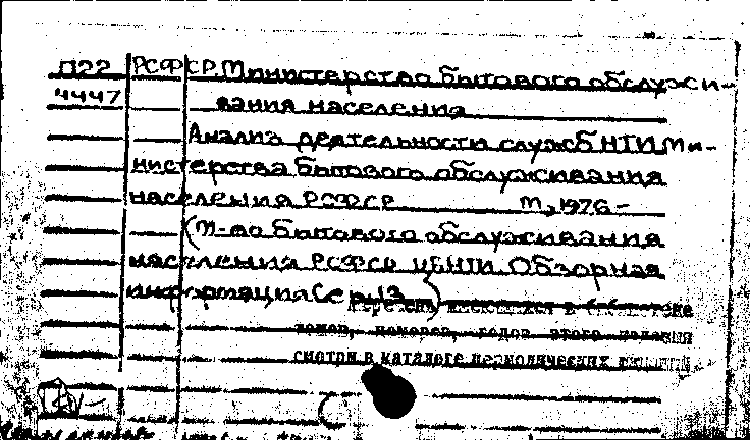 П22 РСФСР. Министерство бытового обслужи-
4447 вания населения
Анализ деятельности служб НТИ Ми-
нистерства бытового обслуживания
населения РСФСР М., 1976 -
(М-во бытового обслуживания
населения РСФСР ЦБНТИ. Обзорная
информация Сер. 13)
Перечень имеющихся в библиотеке
томов, номеров, годов этого издания
смотри в каталоге периодических изданий